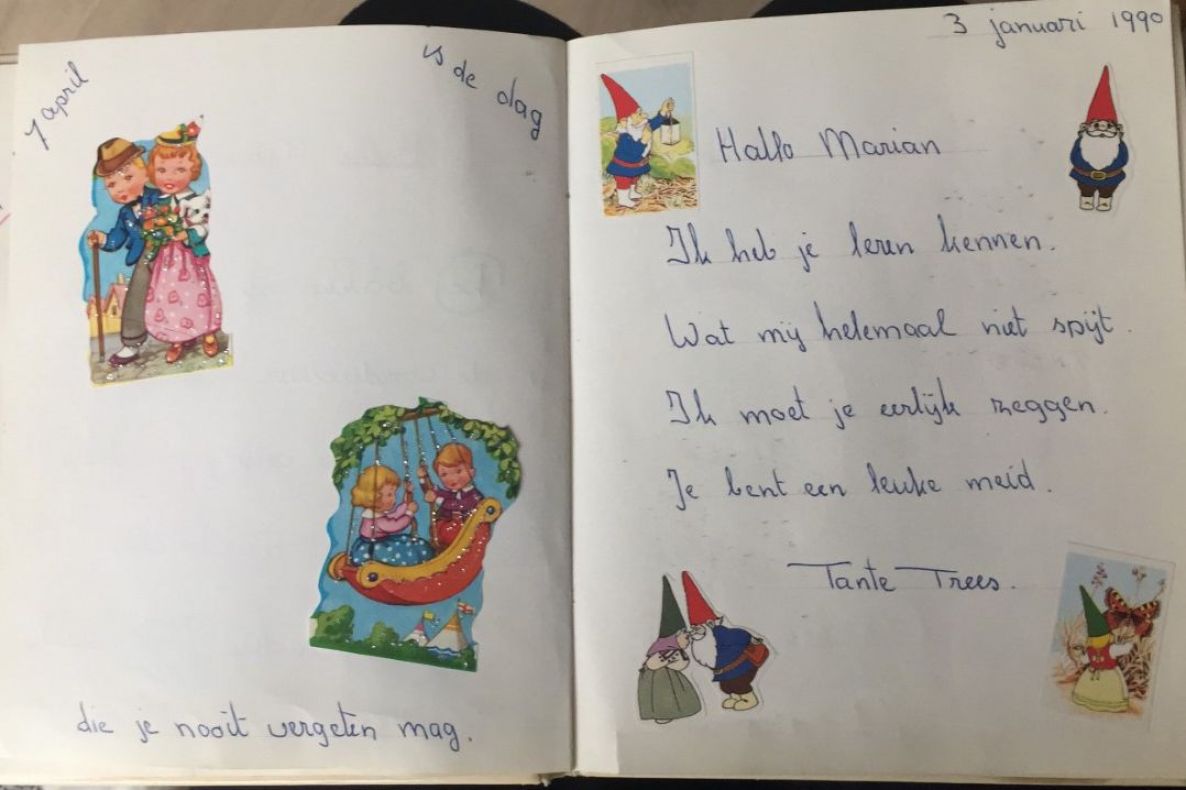 7 april
is de dag
die je nooit vergeten mag.
3 januari 1990
Hallo Marian
Ik heb je leren kennen.
Wat mij helemaal niet spijt.
Ik moet je eerlijk zeggen.
Je bent een leuke meid.
Tante Trees.